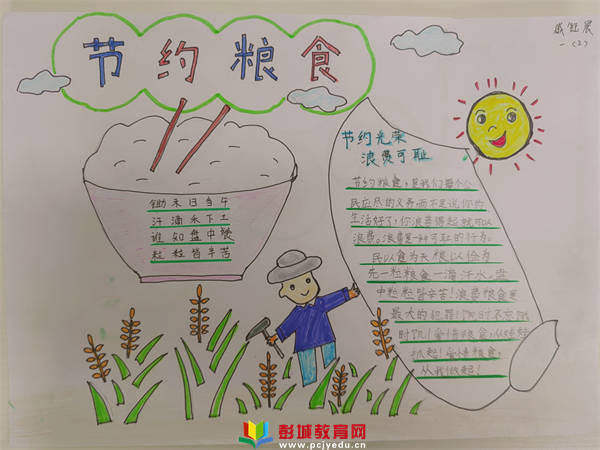 节约粮食
一(2)
锄禾日当午
汗滴禾下土
谁知盘中餐
粒粒皆辛苦
节约光荣
浪费可耻
节约粮食,是我们每个公
民应尽的义务,而不是说你的
生活好了,你浪费得起就可以
浪费。浪费是一种可耻的行为。
民以食为天 粮以俭为
先 一粒粮食一滴汗水!盘
中粒粒皆辛苦!浪费粮食是
最大的犯罪!饱时不忘饿
时饥!爱惜粮食,从娃娃
抓起!爱惜粮食,
从我做起!
彭城教育网
www.pcjyedu.cn